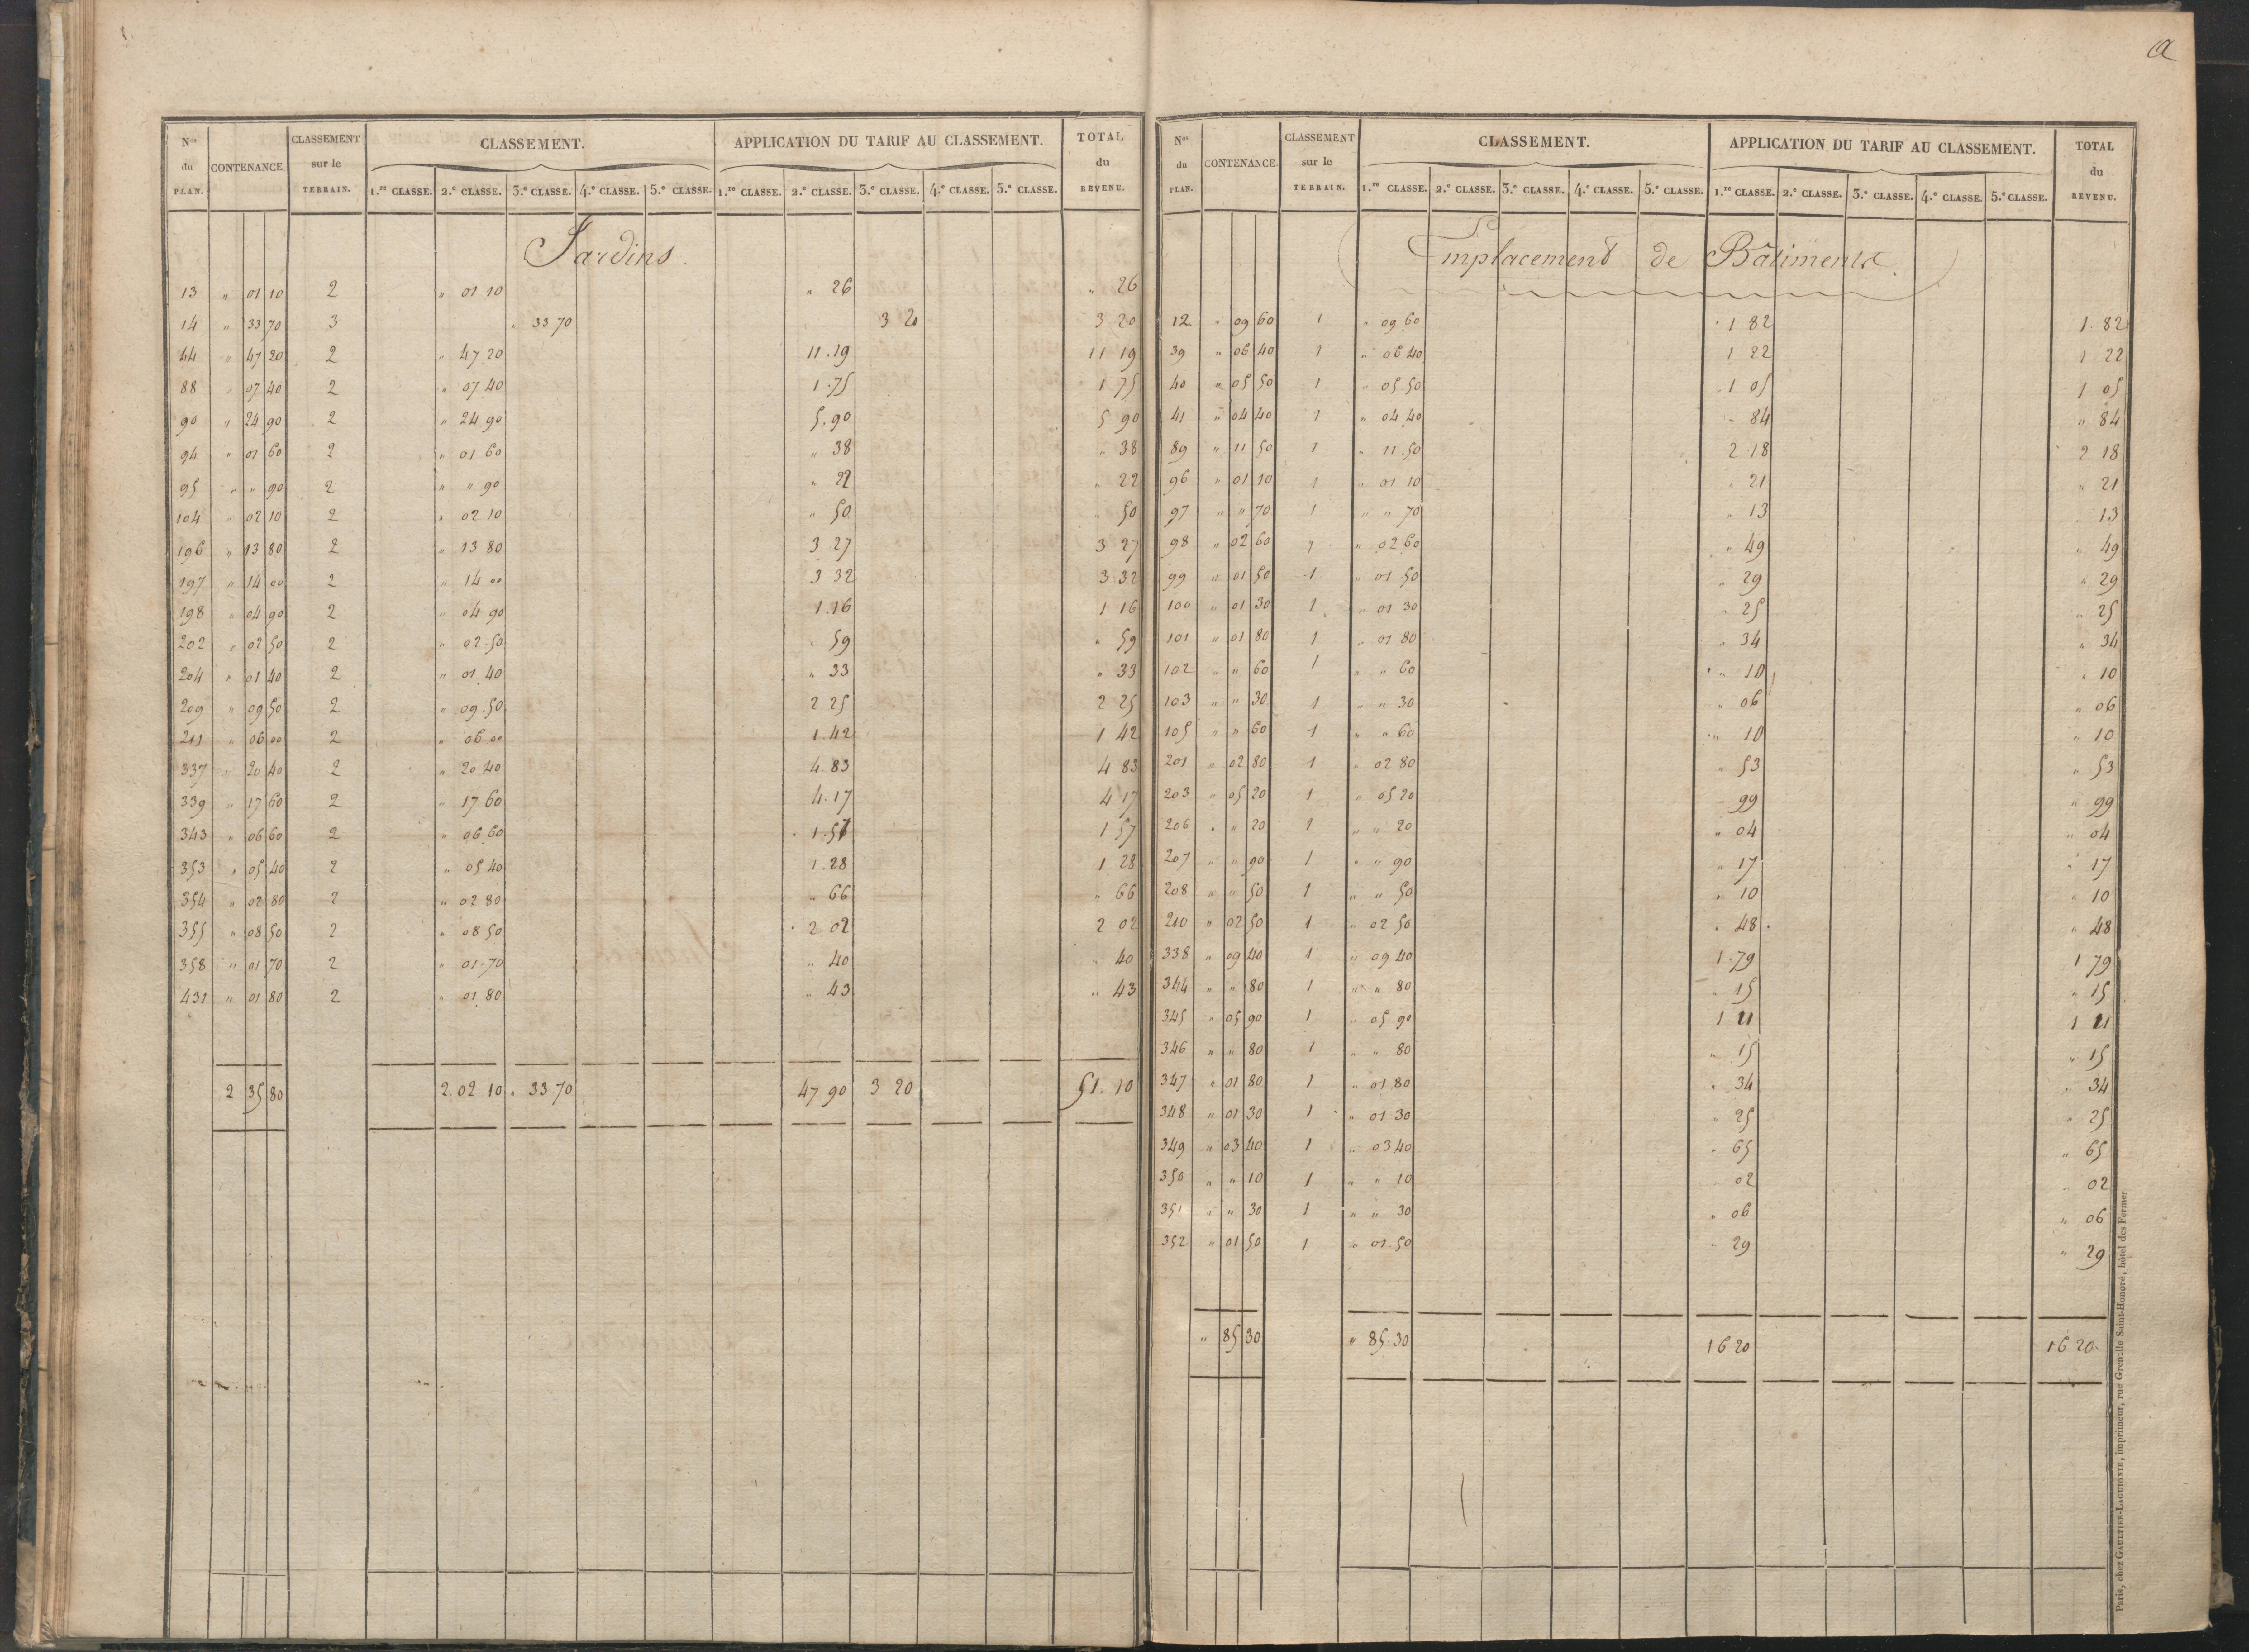 a
Nos du PLAN. CONTENANCE CLASSEMENT sur le TERRAIN. CLASSEMENT. APPLICATION DU TARIF AU CLASSEMENT. TOTAL du REVENU.
1.re CLASSE. 2.e CLASSE. 3.e CLASSE. 4.e CLASSE. 5.e CLASSE. 1.re CLASSE. 2.e CLASSE. 3.e CLASSE. 4.e CLASSE. 5.e CLASSE.
Jardins.
13 " 01 10 2 " 01 10 " 26 " 26
14 " 33 70 3 " 33 70 3 20 3 20
44 " 47 20 2 " 47 20 11.19 11 19
88 " 07 40 2 " 07 40 1.75 1 75
90 " 24 90 2 " 24 90 5.90 5 90
94 " 01 60 2 " 01 60 " 38 " 38
95 " " 90 2 " " 90 " 22 " 22
104 " 02 10 2 " 02 10 " 50 " 50
196 " 13 80 2 " 13 80 3 27 3 27
197 " 14 00 2 " 14 00 3 32 3 32
198 " 04 90 2 " 04 90 1.16 1 16
202 " 02 50 2 " 02.50 " 59 " 59
204 " 01 40 2 " 01 40 " 33 " 33
209 " 09 50 2 " 09.50 2 25 2 25
211 " 06 00 2 " 06 00 1.42 1 42
337 " 20 40 2 " 20 40 4.83 4 83
339 " 17 60 2 " 17 60 4.17 4 17
343 " 06 60 2 " 06 60 1.57 1 57
353 " 05 40 2 " 05 40 1.28 1 28
354 " 02 80 2 " 02 80 " 66 " 66
355 " 08 50 2 " 08 50 2 02 2 02
358 " 01 70 2 " 01.70 " 40 " 40
431 " 01 80 2 " 01 80 " 43 " 43
2 35 80 2.02.10 " 33.70 47 90 3 20 51.10
Nos du PLAN. CONTENANCE. CLASSEMENT sur le TERRAIN. CLASSEMENT. APPLICATION DU TARIF AU CLASSEMENT. TOTAL du REVENU.
1.re CLASSE. 2.e CLASSE. 3.e CLASSE. 4.e CLASSE. 5.e CLASSE. 1.re CLASSE. 2.e CLASSE. 3.e CLASSE. 4.e CLASSE. 5.e CLASSE.
Emplacement de Bâtiments.
12 " 09 60 1 " 09 60 1 82 1.82
39 " 06 40 1 " 06 40 1 22 1 22
40 " 05 50 1 " 05 50 1 05 1 05
41 " 04 40 1 " 04 40 " 84 " 84
89 " 11 50 1 " 11.50 2.18 2 18
96 " 01 10 1 " 01 10 " 21 " 21
97 " " 70 1 " " 70 " 13 " 13
98 " 02 60 1 " 02 60 " 49 " 49
99 " 01 50 1 " 01 50 " 29 " 29
100 " 01 30 1 " 01 30 " 25 " 25
101 " 01 80 1 " 01 80 " 34 " 34
102 " " 60 1 " " 60 " 10 " 10
103 " " 30 1 " " 30 " 06 " 06
105 " " 60 1 " " 60 " 10 " 10
201 " 02 80 1 " 02 80 " 53 " 53
203 " 05 20 1 " 05 20 " 99 " 99
206 " " 20 1 " " 20 " 04 " 04
207 " " 90 1 " " 90 " 17 " 17
208 " " 50 1 " " 50 " 10 " 10
210 " 02 50 1 " 02 50 " 48 " 48
338 " 09 40 1 " 09 40 1.79 1 79
344 " " 80 1 " " 80 " 15 " 15
345 " 05 90 1 " 05 90 1 11 1 11
346 " " 80 1 " " 80 " 15 " 15
347 " 01 80 1 " 01 80 " 34 " 34
348 " 01 30 1 " 01 30 " 25 " 25
349 " 03 40 1 " 03 40 " 65 " 65
350 " " 10 1 " " 10 " 02 " 02
351 " " 30 1 " " 30 " 06 " 06
352 " 01 50 1 " 01.50 " 29 " 29
" 85 30 " 85.30 16 20 16 20
Paris, chez GAULTIER-LAGUIONIE, imprimeur, rue Grenelle Saint-Honoré, hôtel des Fermes